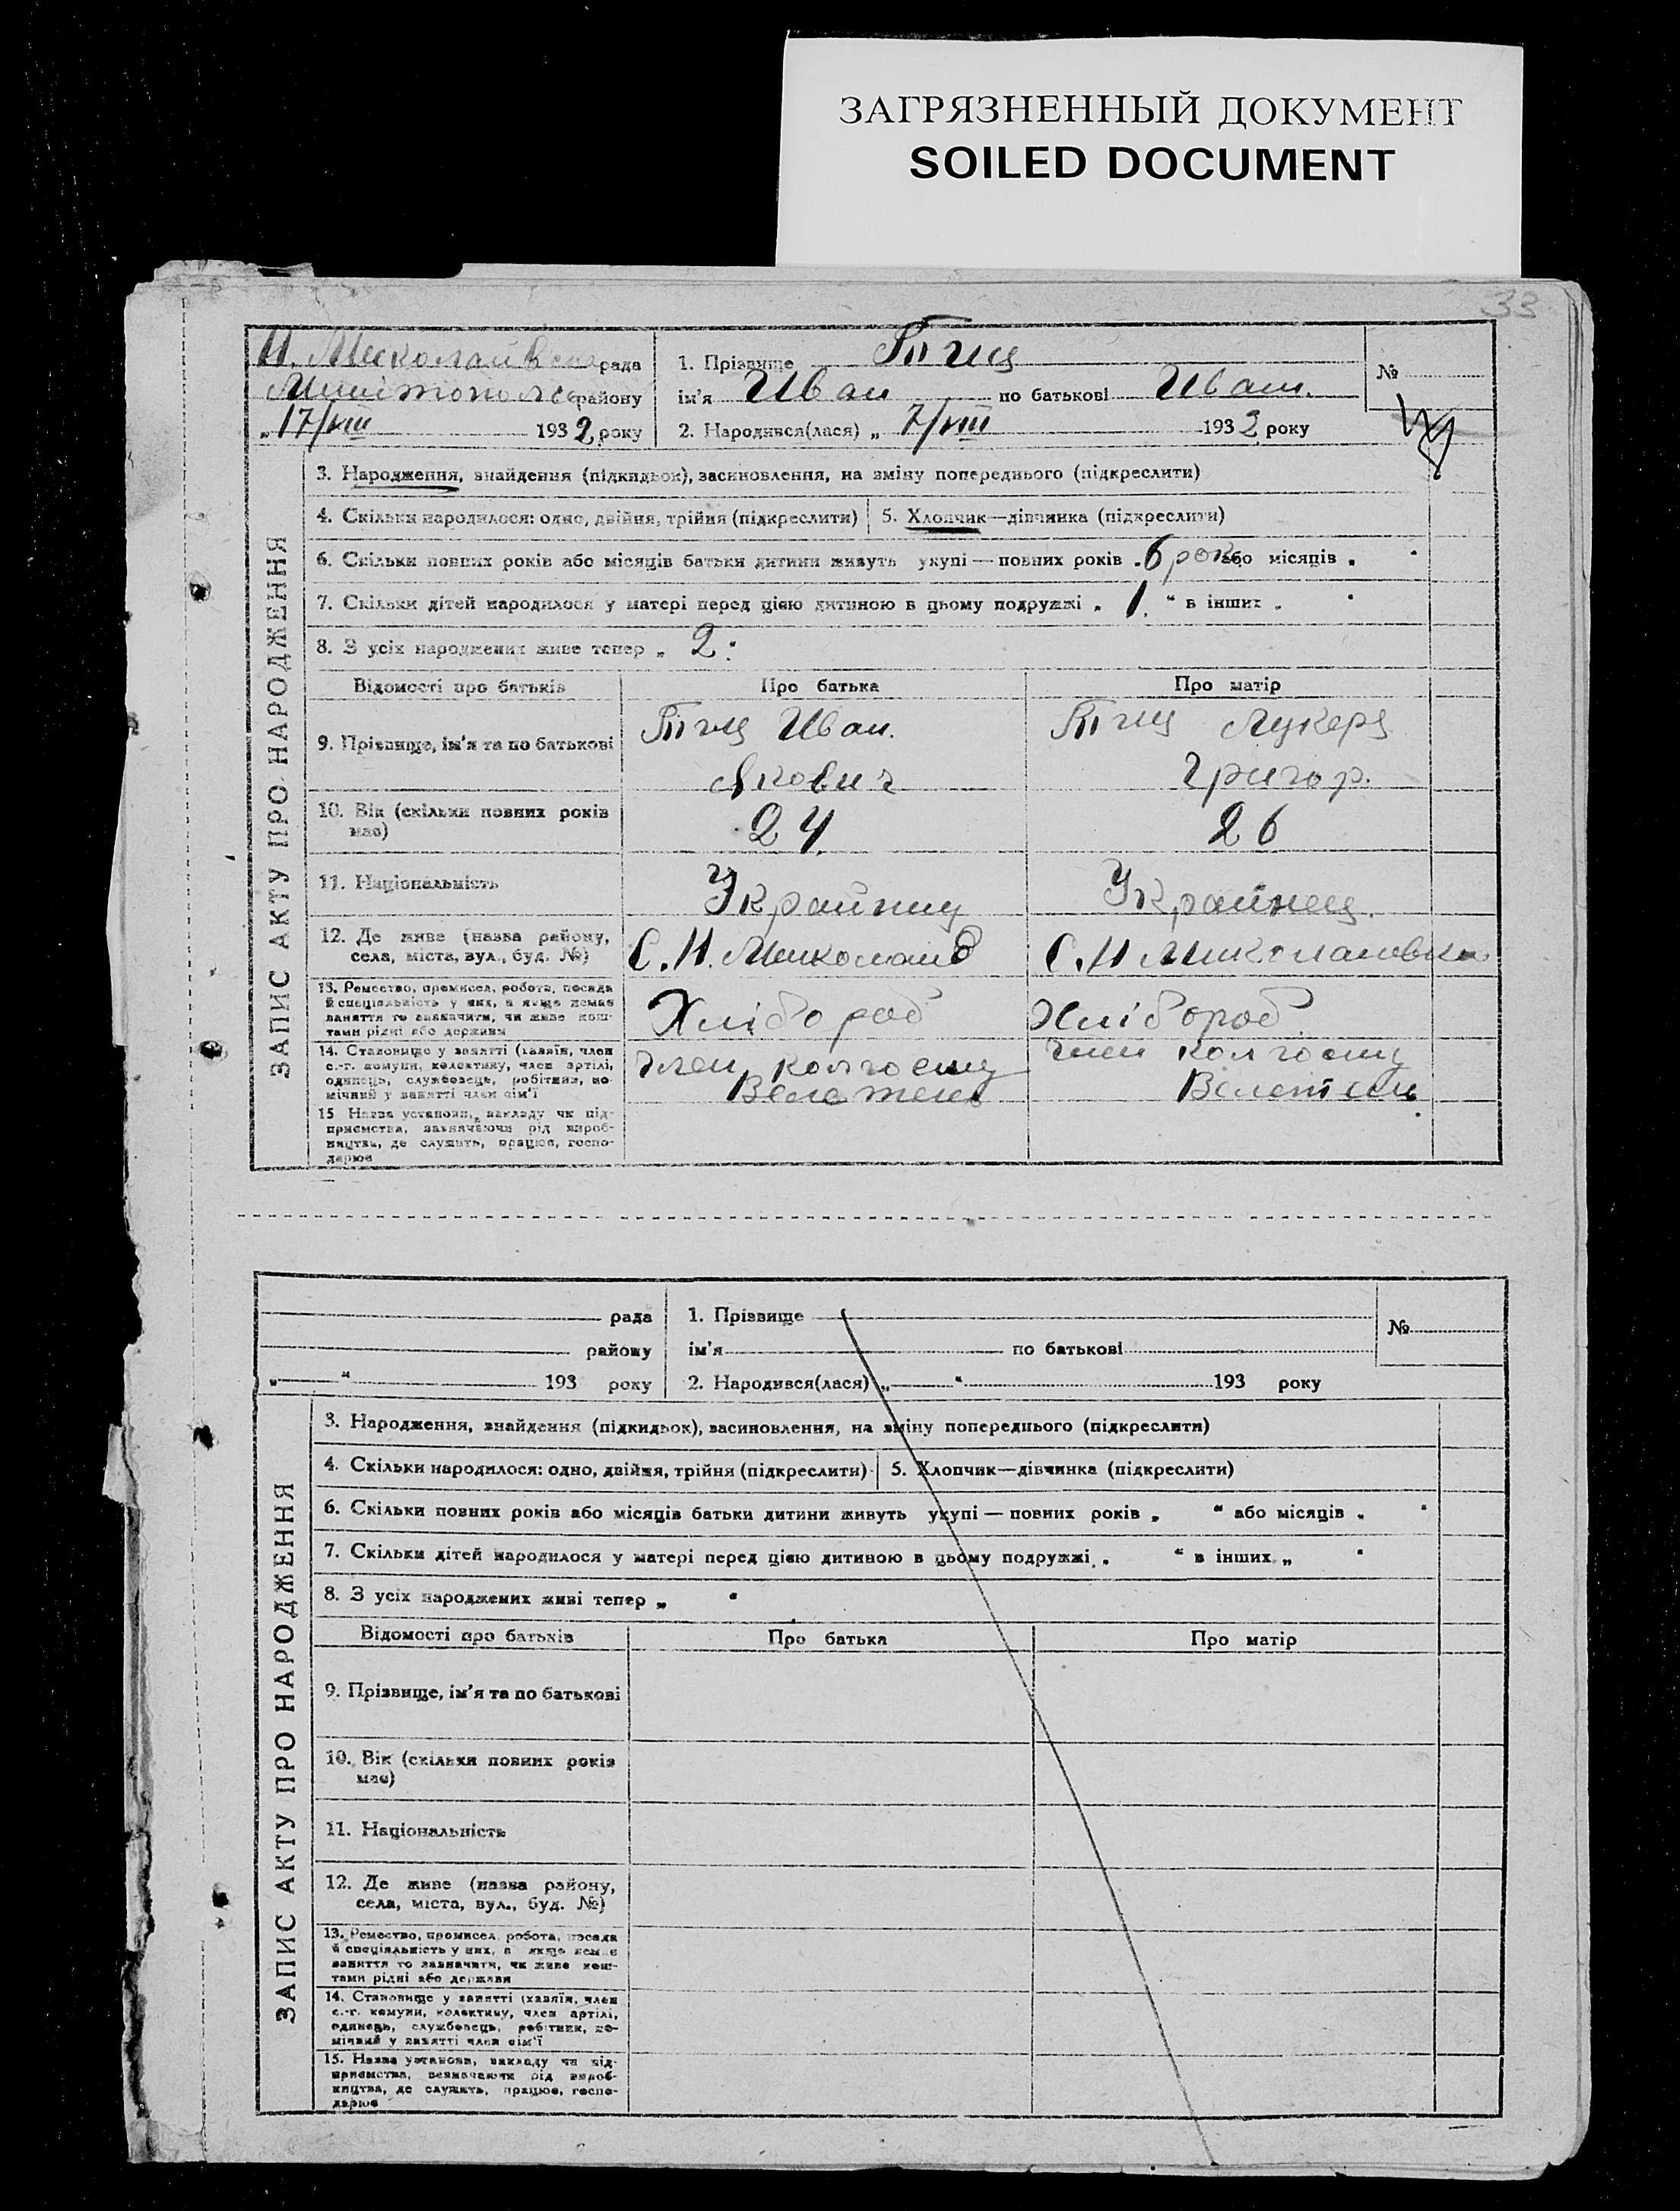 ЗАГРЯЗНЕННЫЙ ДОКУМЕНТ
SOILED DOCUMENT
33
Н. Миколаивська рада
району
„17/VIII 1932 року
1. Прізвище
ім'я Иван по батькові Иван.
2. Народився(лася) „ 7/VIII 1932 року
№
ЗАПИС АКТУ ПРО НАРОДЖЕННЯ
3. Народження, знайдення (підкидьок), засиновлення, на зміну попереднього (підкреслити)
4. Скільки народилося: одно, двійня, трійня (підкреслити) 5. Хлопчик—дівчинка (підкреслити)
6. Скільки повних років або місяців батьки дитини живуть укупі — повних років „ 6 рок або місяців „ "
7. Скільки дітей народилося у матері перед цією дитиною в цьому подружжі „ 1. " в інших „ "
8. З усіх народжених живе тепер „ 2 "
Відомості про батьків Про батька Про матір
9. Прізвище, ім'я та по батькові
Иван.
Якович
Лукеря
Григор.
10. Вік (скільки повних років має)
24
26
11. Національність
Украйниц
Украйнец.
12. Де живе (назва району, села, міста, вул., буд. №)
С. Н. Миколаив
С. Н Миколаювка
13. Ремество, промисел, робота, посада
й спеціяльність у них, а якщо немає
заняття то зазначити, чи живе кош-
тами рідні або держави
Хлібороб
Хлібороб
14. Становище у занятті (хазяїн, член
с.-г. комуни, колективу, член артілі,
одинець, службовець, робітник, по-
мічний у занятті член сім'ї
член колгоспу
член колгоспу
15. Назва установи, закладу чи під-
приємства, зазначаючи рід вироб-
ництва, де служить, працює, госпо-
дарює
рада
району
„ " 193 року
1. Прізвище
ім'я по батькові
2. Народився(лася) „ " 193 року
№
ЗАПИС АКТУ ПРО НАРОДЖЕННЯ
3. Народження, знайдення (підкидьок), засиновлення, на зміну попереднього (підкреслити)
4. Скільки народилося: одно, двійня, трійня (підкреслити) 5. Хлопчик—дівчинка (підкреслити)
6. Скільки повних років або місяців батьки дитини живуть укупі — повних років „ " або місяців „ "
7. Скільки дітей народилося у матері перед цією дитиною в цьому подружжі „ " в інших „ "
8. З усіх народжених живі тепер „ "
Відомості про батьків Про батька Про матір
9. Прізвище, ім'я та по батькові
10. Вік (скільки повних років
має)
11. Національність
12. Де живе (назва району,
села, міста, вул., буд. №)
13. Ремество, промисел, робота, посада
й спеціяльність у них, а якщо немає
заняття то зазначити, чи живе кош-
тами рідні або держави
14. Становище у занятті (хазяїн, член
с.-г. комуни, колективу, член артілі,
одинець, службовець, робітник, по-
мічний у занятті член сім'ї
15. Назва установи, закладу чи під-
приємства, зазначаючи рід вироб-
ництва, де служить, працює, госпо-
дарює